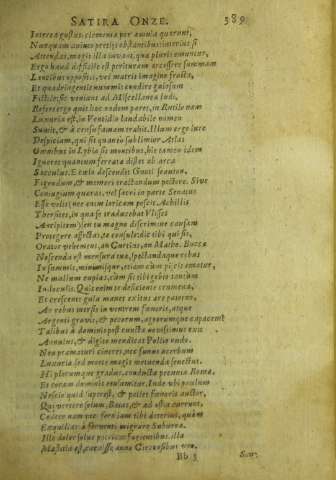 SATIRA ONZE. 589
Interea gustus elementa per omnia quærunt,
Nunquam animo pretijs obstantibus: interius si
Attendas, magis illa iuvant, quæ pluris emuntur,
Ergo haud difficile est perituram arcessere summam
Lancibus oppositis, vel matris imagine fracta,
Et quadringentis nummis condire gulosum
Fictile: sic veniunt ad Miscellanea ludi,
Refert ergo quis hæc eadem paret, in Rutilo nam
Luxuria est, in Ventidio laudabile nomen
Sumit, & à censu famam trahit. Illum ergo iure
Despiciam, qui scit quanto sublimior Atlas
Omnibus in Lybia sit montibus, hic tamen idem
Ignoret quantum ferrata distet ab arca
Sacculus. E cælo descendit Gnoti seauton,
Figendum, & memori tractandum pectore. Sive
Coniugium quæras, vel sacri in parte Senatus
Esse velis: nec enim loricam poscit Achillis
Thersites, in qua se traducebat Ulisses
Ancipitem, seu tu magno discrimine causam
Protegere affectas, te consule, dic tibi qui sis,
Orator vehemens, an Curtius, an Matho. Buccæ
Noscenda est mensura tuæ, spectandaque rebus
In summis, minimisque, etiam cùm piscis emetur,
Ne mullum cupias, cùm sit tibi gobio tantùm
In loculis. Quis enim te deficiente crumena,
Et crescente gula manet exitus ære paterno,
Ac rebus mersis in ventrem fœnoris, atque
Argenti gravis, & pecorum, agrorumque capacem?
Talibus à dominis post cuncta novissimus exit
Annulus, & digito mendicat Pollio nudo.
Non præmaturi cineres, nec funus acerbum
Luxuriæ sed morte magis metuenda senectus.
Hi plerumque gradus, conducta pecunia Romæ,
Et coram dominis consumitur. Inde ubi paulum
Nescio quid superest, & pallet fœnoris auctor,
Qui vertere solum, Baias, & ad ostia currunt,
Cedere namque foro iam tibi deterius, quàm
Exquilias à ferventi migrare Suburra.
Ille dolor solus patriam fugientibus, illa
Mæstitia est, caruisse anno Circensibus uno.
Bb 5 San-